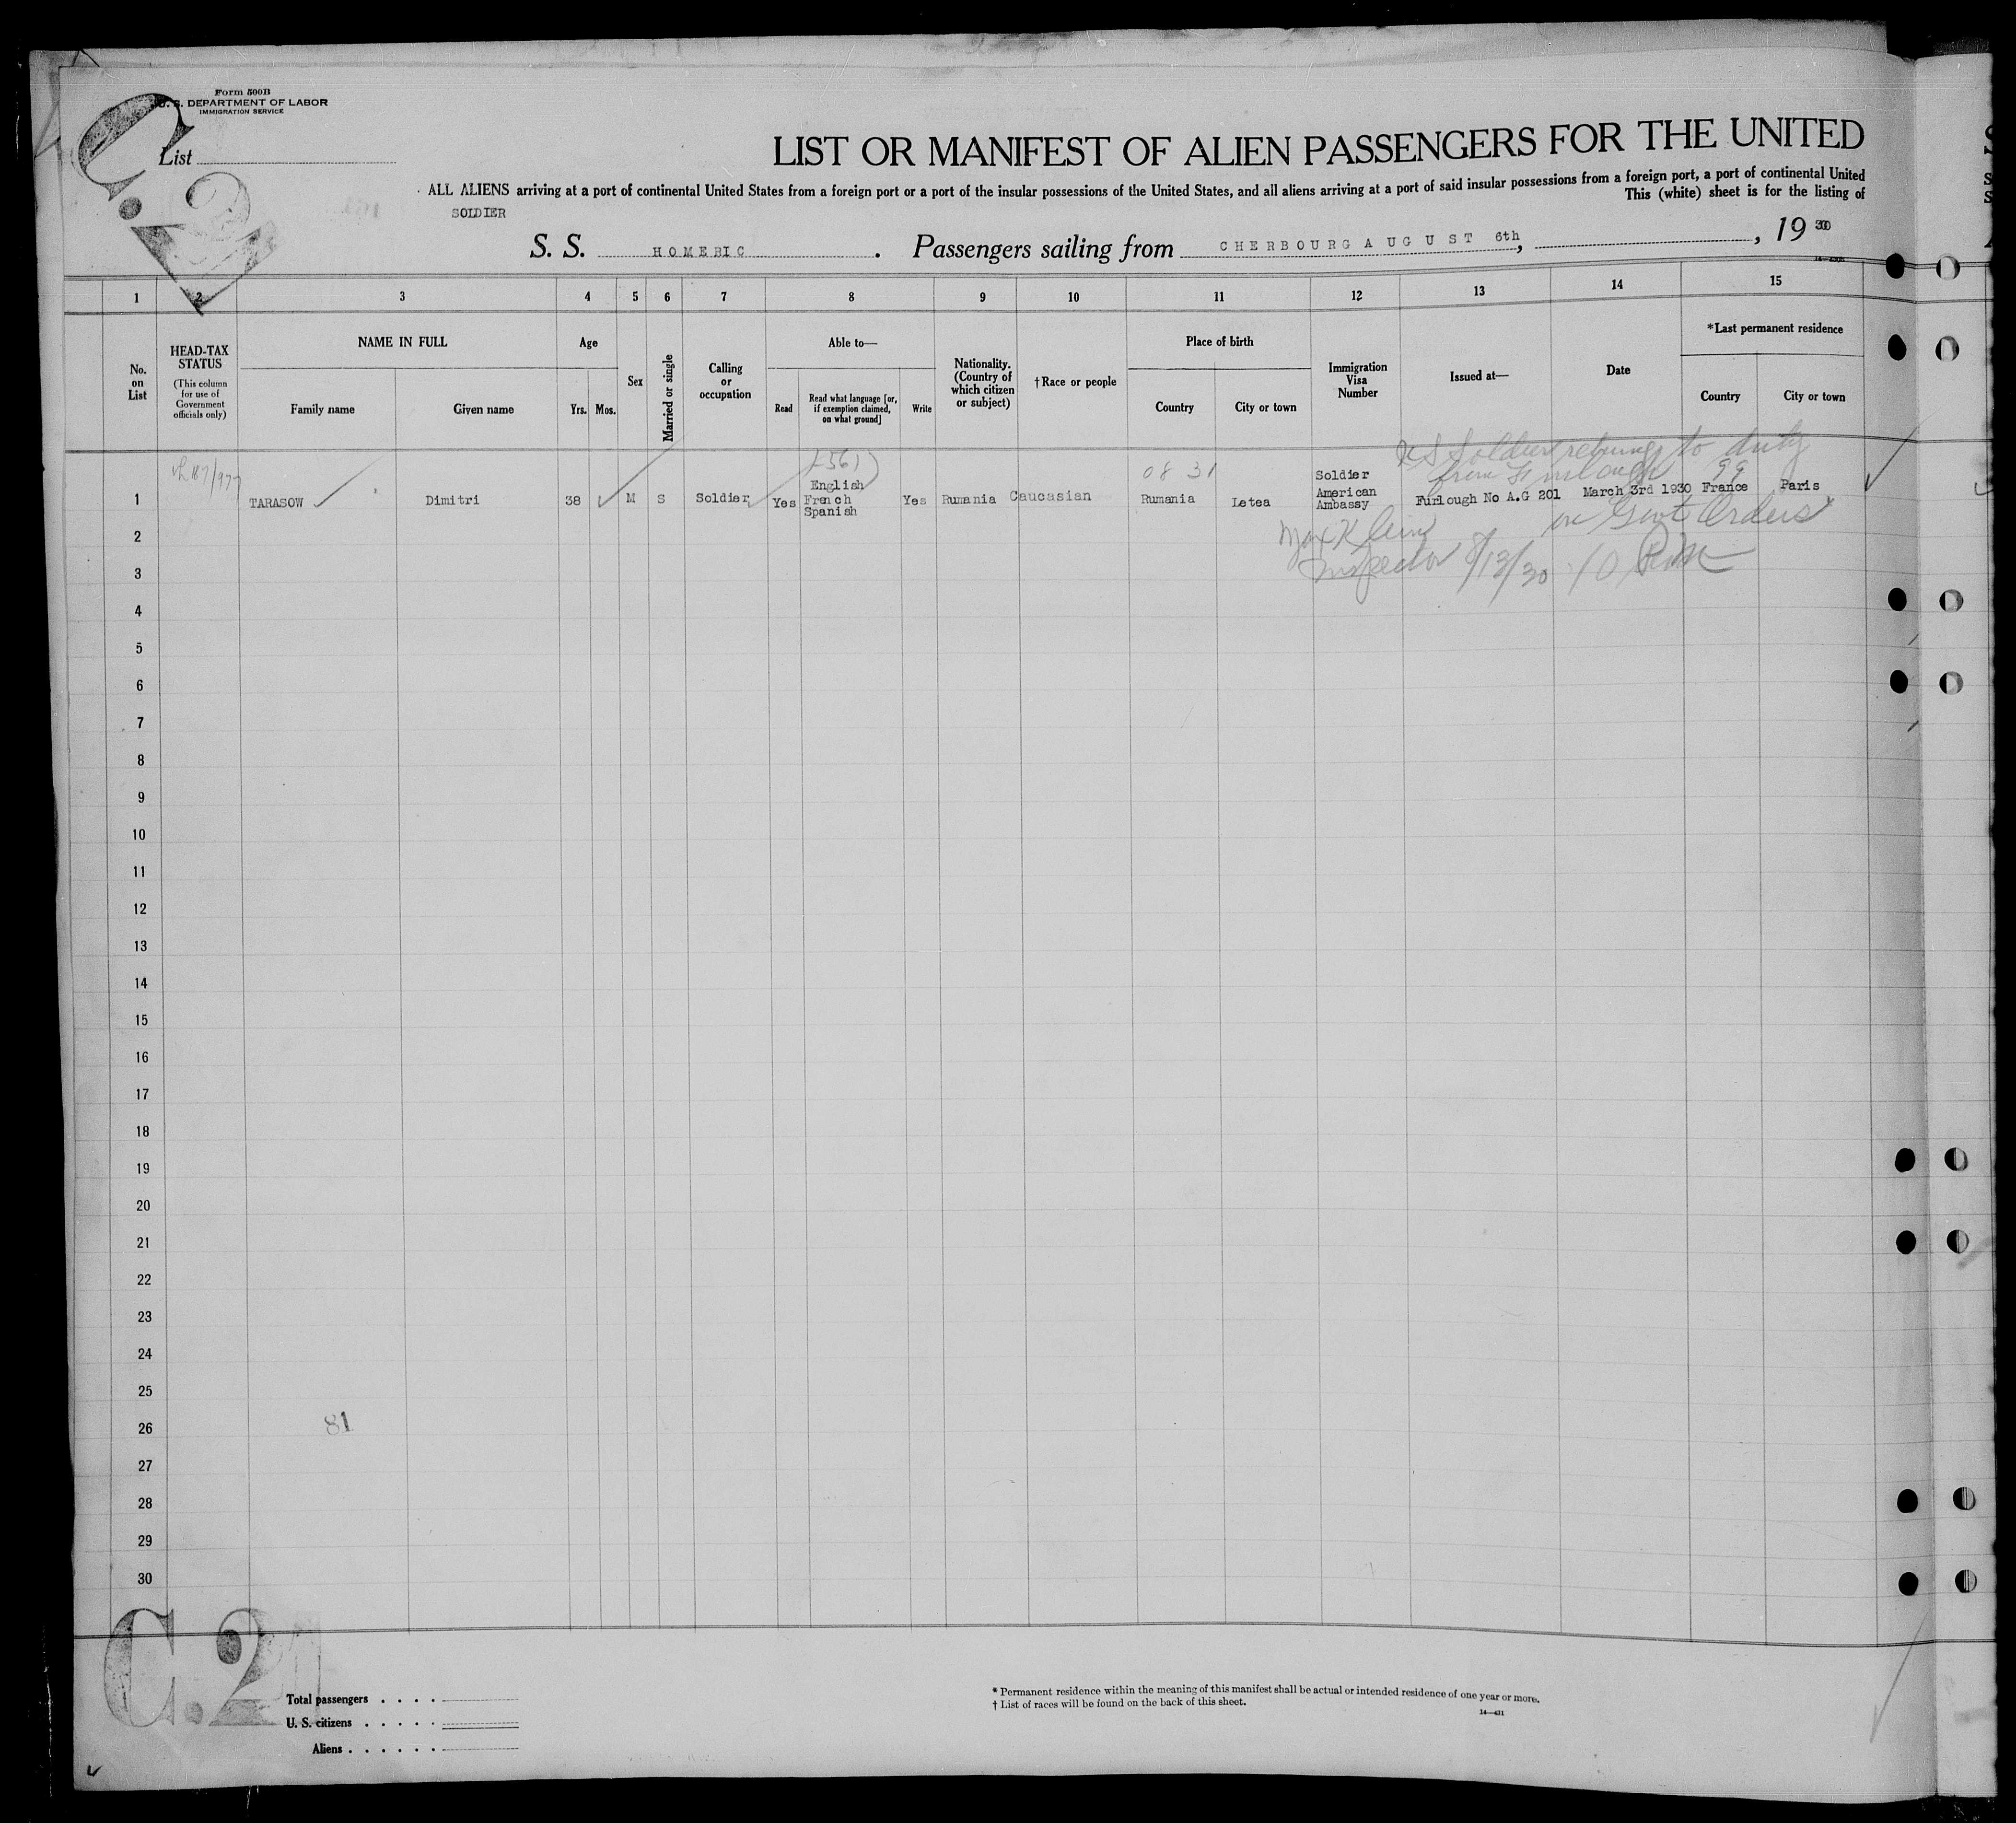 Form 500B
U. S. DEPARTMENT OF LABOR
IMMIGRATION SERVICE
C. 2
List
LIST OR MANIFEST OF ALIEN PASSENGERS FOR THE UNITED
ALL ALIENS arriving at a port of continental United States from a foreign port or a port of the insular possessions of the United States, and all aliens arriving at a port of said insular possessions from a foreign port, a port of continental United
This (white) sheet is for the listing of
SOLDIER
S. S. HOMERIC. Passengers sailing from CHERBOURG AUGUST 6th, , 19 30
1 2 3 4 5 6 7 8 9 10 11 12 13 14 15
No. on List
HEAD-TAX STATUS
(This column for use of Government officials only)
NAME IN FULL
Family name
Given name
Age
Yrs. Mos.
Sex
Married or single
Calling or occupation
Able to—
Read
Read what language [or, if exemption claimed, on what ground]
Write
Nationality. (Country of which citizen or subject)
†Race or people
Place of birth
Country
City or town
Immigration Visa Number
Issued at—
Date
*Last permanent residence
Country
City or town
U S Soldier returning to duty
from Furlough 99
08 31
1 TARASOW Dimitri 38 M S Soldier Yes English French Spanish Yes Rumania Caucasian Rumania Letea Soldier American Ambassy Furlough No A.G 201 March 3rd 1930 France Paris
on Govt Orders
Max Klein
Inspector 8/13/30
2
3
4
5
6
7
8
9
10
11
12
13
14
15
16
17
18
19
20
21
22
23
24
25
26
81
27
28
29
30
C.2
Total passengers . . . .
U. S. citizens . . . . .
Aliens . . . . . .
* Permanent residence within the meaning of this manifest shall be actual or intended residence of one year or more.
† List of races will be found on the back of this sheet.
14—421